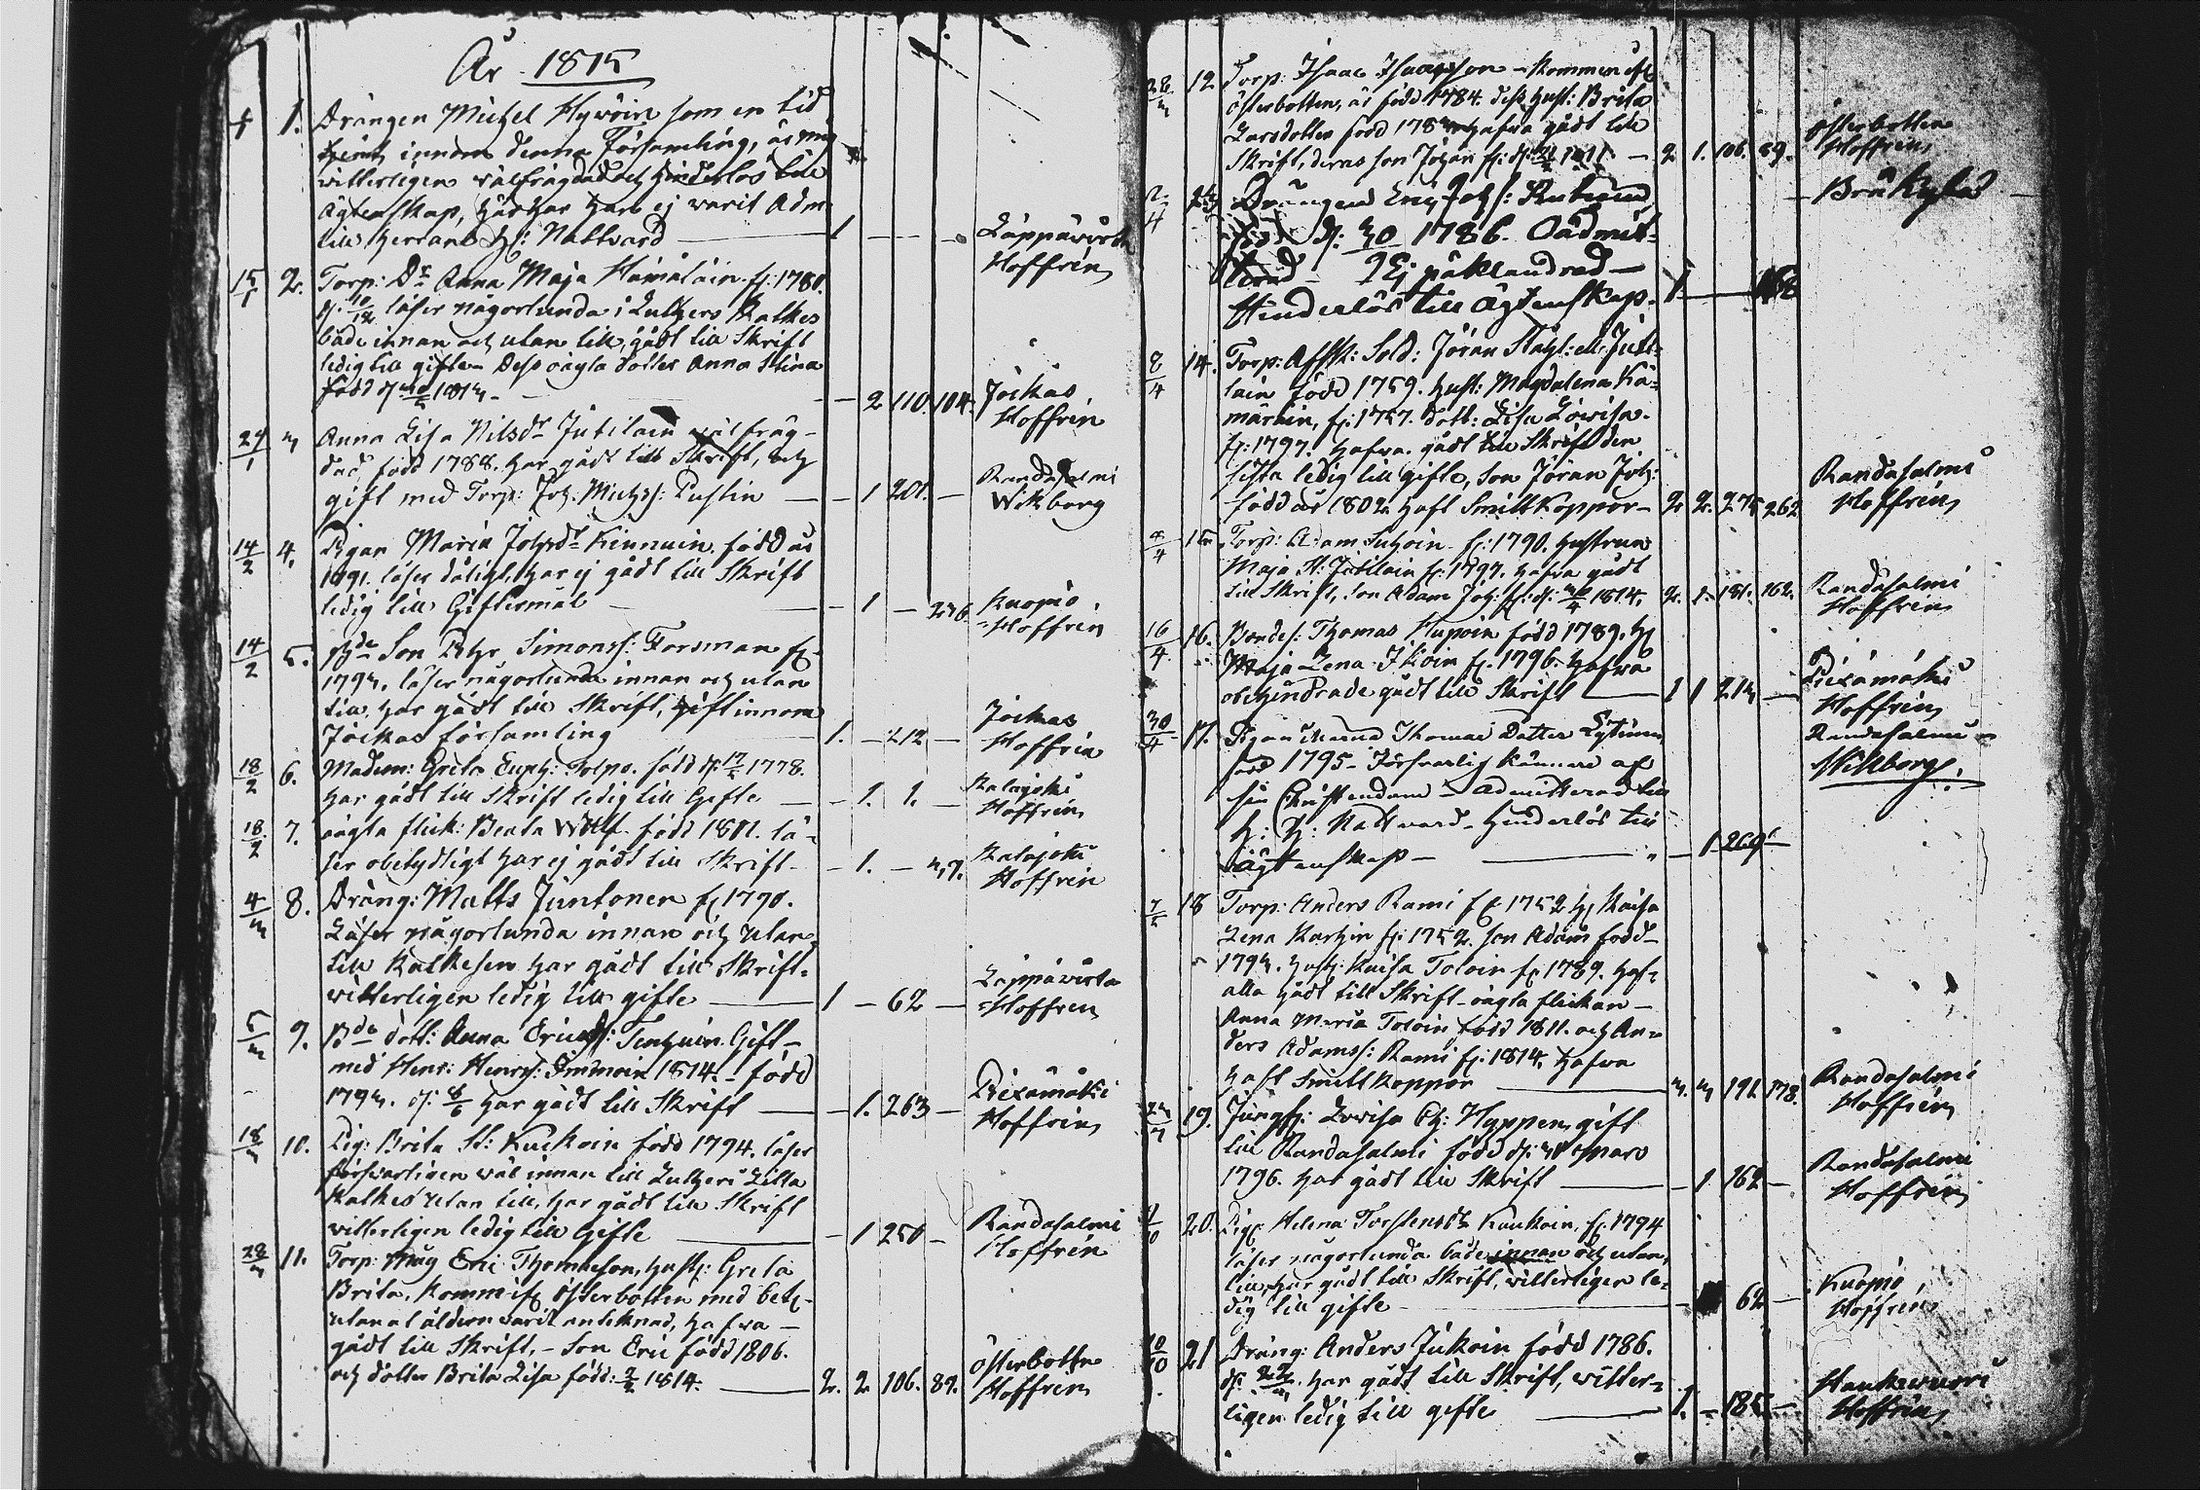 År 1815
1. Drängen Michel Hyvöin som en tid
tjent innom denna Församling, är mig
witterligen wälfrägdad och hinderlös till
Ägtenskap, här har han ej warit Adm:
till Herrans H: Nattvard — 1 — — — Läppävirta
Hoffrén
15/1 2. Torp: Dr Anna Maja Hämäläin f: 1780.
d: 10/12 läser någorlunda i Luthers Katkes
både innan och utan till, gådt till Skrift
ledig till gifte. Dess oägta dotter Anna Stina
född d 1813. — 2 110. 104. Jöckas
Hoffrén
24/1 3 Anna Lisa Nilsdr Jutilain wälfräg-
dad född 1788. har gådt till Skrift, och
gift med Torp: Joh. Michs: Puslin — 1 201. — Randasalmi
Wikborg
14/2 4. Pigan Maria Johsdr Kinnuin född år
1791. läser dåligt, har ej gådt till Skrift
ledig till Giftermål — 1 — 236. Kuopio
Hoffrén
14/2 5. Bde Son Petr Simonss: Forsman f:
1793. läser någorlunda innan och utan
till, har gådt till Skrift, gift innom
Jöckas församling 1. — 212 — Jöckas
Hoffrén
18/2 6. Madem: Greta Euph: Tolpo. född d: 17/5 1778.
har gådt till Skrift ledig till Gifte — 1. 1. — Kalajoki
Hoffrén
18/2 7. oägta flick: Beata Wulf. född 1801. lä-
ser obetydligt har ej gådt till Skrift — 1. — 37. Kalajoki
Hoffrén
4/3 8. Dräng: Matts Juntonen f 1790.
Läser någorlunda innan och utan
till Katkesen har gådt till Skrift.
witterligen ledig till gifte — 1 — 62 — Läppävirta
Hoffren
5/3 9. Bde dott: Anna Ericsd: Tenhuin. Gift
med Henr: Henrs: Immoin 1814. — född
1793. d: 8/6 har gådt till Skrift — 1. 263 — Piexämäki
Hoffrén
18/3 10. Pig: Brita St: Kuckoin född 1794, läser
försvarligen wäl innan till Lutheri Lilla
Katkes utan till, har gådt till Skrift
witterligen ledig till Gifte — 1 250 — Randasalmi
Hoffrén
28/3 11. Torp: Måg Eric Thomasson, hust: Greta
Brita, Komm: if: Österbotten med bet:
utan at åldern warit anteknad, hafwa
gådt till Skrift, — Son Eric född 1806.
och dotter Brita Lisa född: 2/2 1814. — 2. 2 106. 89. Österbottn
Hoffrén
28/3 12 Torp: Isaac Isaacsson — Kommen if:
Österbotten, är född 1784. dess hust: Brita
Larsdotter född 1783 hafwa gådt till
Skrift, deras son Johan f: d: 1811. — 2 1. 106. 89. Österbotten
Hoffrén
2/4 13 Drängen Eric Joh: s:
född d: 30 1786. Oadmit-
terad — Ej påklandrad —
Hinderlös till Ägtenskap. 1 — Bräkylä
8/4 14. Torp: Afsk: Sold: Jöran Ståhl: el: Juti-
lain född 1759. hust: Magdalena Kä-
märäin, f: 1757. dott: Lisa Lovisa.
f: 1797. hafwa gådt till Skrift den
sista ledig till gifte, son Jöran Joh:
född år 1802 haft Smittkoppor — 2 2. 275 262. Randasalmi
Hoffrén
15. Torp: Adam Suhoin. f: 1790. hustrun
Maja St: Jutilain f: 1797. hafwa gådt
till Skrift, son Adam Joh: f: d: 1814. 2. 1. 181. 162. Randasalmi
Hoffrén
16/4 16. Bondes: Thomas Hupoin född 1789. H:
Maja Lena Ikoin f: 1796. hafwa
obehindrade gådt till Skrift — 1 1 213 — Piexämäki
Hoffrén
30/4 17. Pigan Thomas Dotter Lytinen
född 1795 — Försvarlig kännare af
sin Christendom — admitterad till
H: H: Nattvard — Hinderlös till
Ägtenskap — 1 269 — Randasalmi
Willborg.
7/5 18 Torp: Anders Rami f 1752 H: Kaisa
Lena Karhin f: 1752. son Adam född
1793. hust: Kaisa Toloin f: 1789. haf:
alla gådt till Skrift — oägta flickan —
Anna Maria Toloin född 1811. och An-
ders Adamss: Rami f: 1814. hafwa
haft Smittkoppor — 3. 3 191 178. Randasalmi
Hoffrén
19. Jungf: Lovisa Ch: Hyppen, gift
till Randasalmi född d: Mars
1796. har gådt till Skrift — 1 162 — Randasalmi
Hoffrén
20. Pig: Helena Torstensdr Kuukoin, f: 1794
läser någorlunda både innan och utan
till, har gådt till Skrift, witterligen le-
dig till gifte — 62 — Kuopio
Hoffrén
10/10 21 Dräng: Anders Jukoin född 1786.
d: har gådt till Skrift, witter-
ligen ledig till gifte — 1. — 185 — Haukivuori
Hoffrén